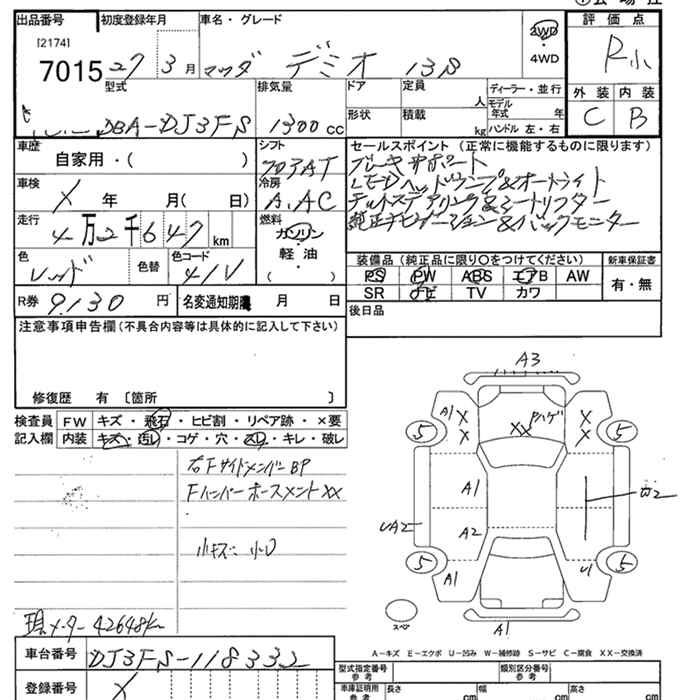 出品番号
[2174]
7015
初度登録年月
27 3 月
車名・グレード
マツダ デミオ 13S
2WD
・
4WD
評価点
R小
型式
DBA-DJ3FS
排気量
1300 cc
ドア
定員
人
形状
積載
kg
ディーラー・並行
モデル
年式 年
ハンドル 左・右
外装 内装
C B
車歴
自家用・( )
シフト
フロアAT
車検
X 年 月( 日)
冷房
A.AC
走行
4万2千647km
燃料
ガソリン
・
軽油
( )
色
レッド
色替
色コード
41V
R券 9130 円
名変通知期限 月 日
セールスポイント(正常に機能するものに限ります)
ブレーキサポート
LEDヘッドランプ&オートライト
チルトステアリング&シートリフター
純正ナビゲーション&バックモニター
装備品(純正品に限り○をつけてください)
新車保証書
PS PW ABS エアB AW
SR ナビ TV カワ
有・無
後日品
注意事項申告欄(不具合内容等は具体的に記入して下さい)
修復歴 有 [箇所 ]
検査員
記入欄
FW キズ・飛石・ヒビ割・リペア跡・×要
内装 キズ・汚レ・コゲ・穴・スレ・キレ・破レ
右FサイドメンバーBP
小キズ・小U
現メーター 42648km
A3
A1 X X
X X
XX
ハゲ
5 5
A1
UA2
A2
5 5
A1
U1
スペア
A1
A-キズ E-エクボ U-凹み W-補修跡 S-サビ C-腐食 XX-交換済
車台番号 DJ3FS-118332
登録番号 X
型式指定番号
参考
類別区分番号
参考
車庫証明用
参考
長さ cm
幅 cm
高さ cm